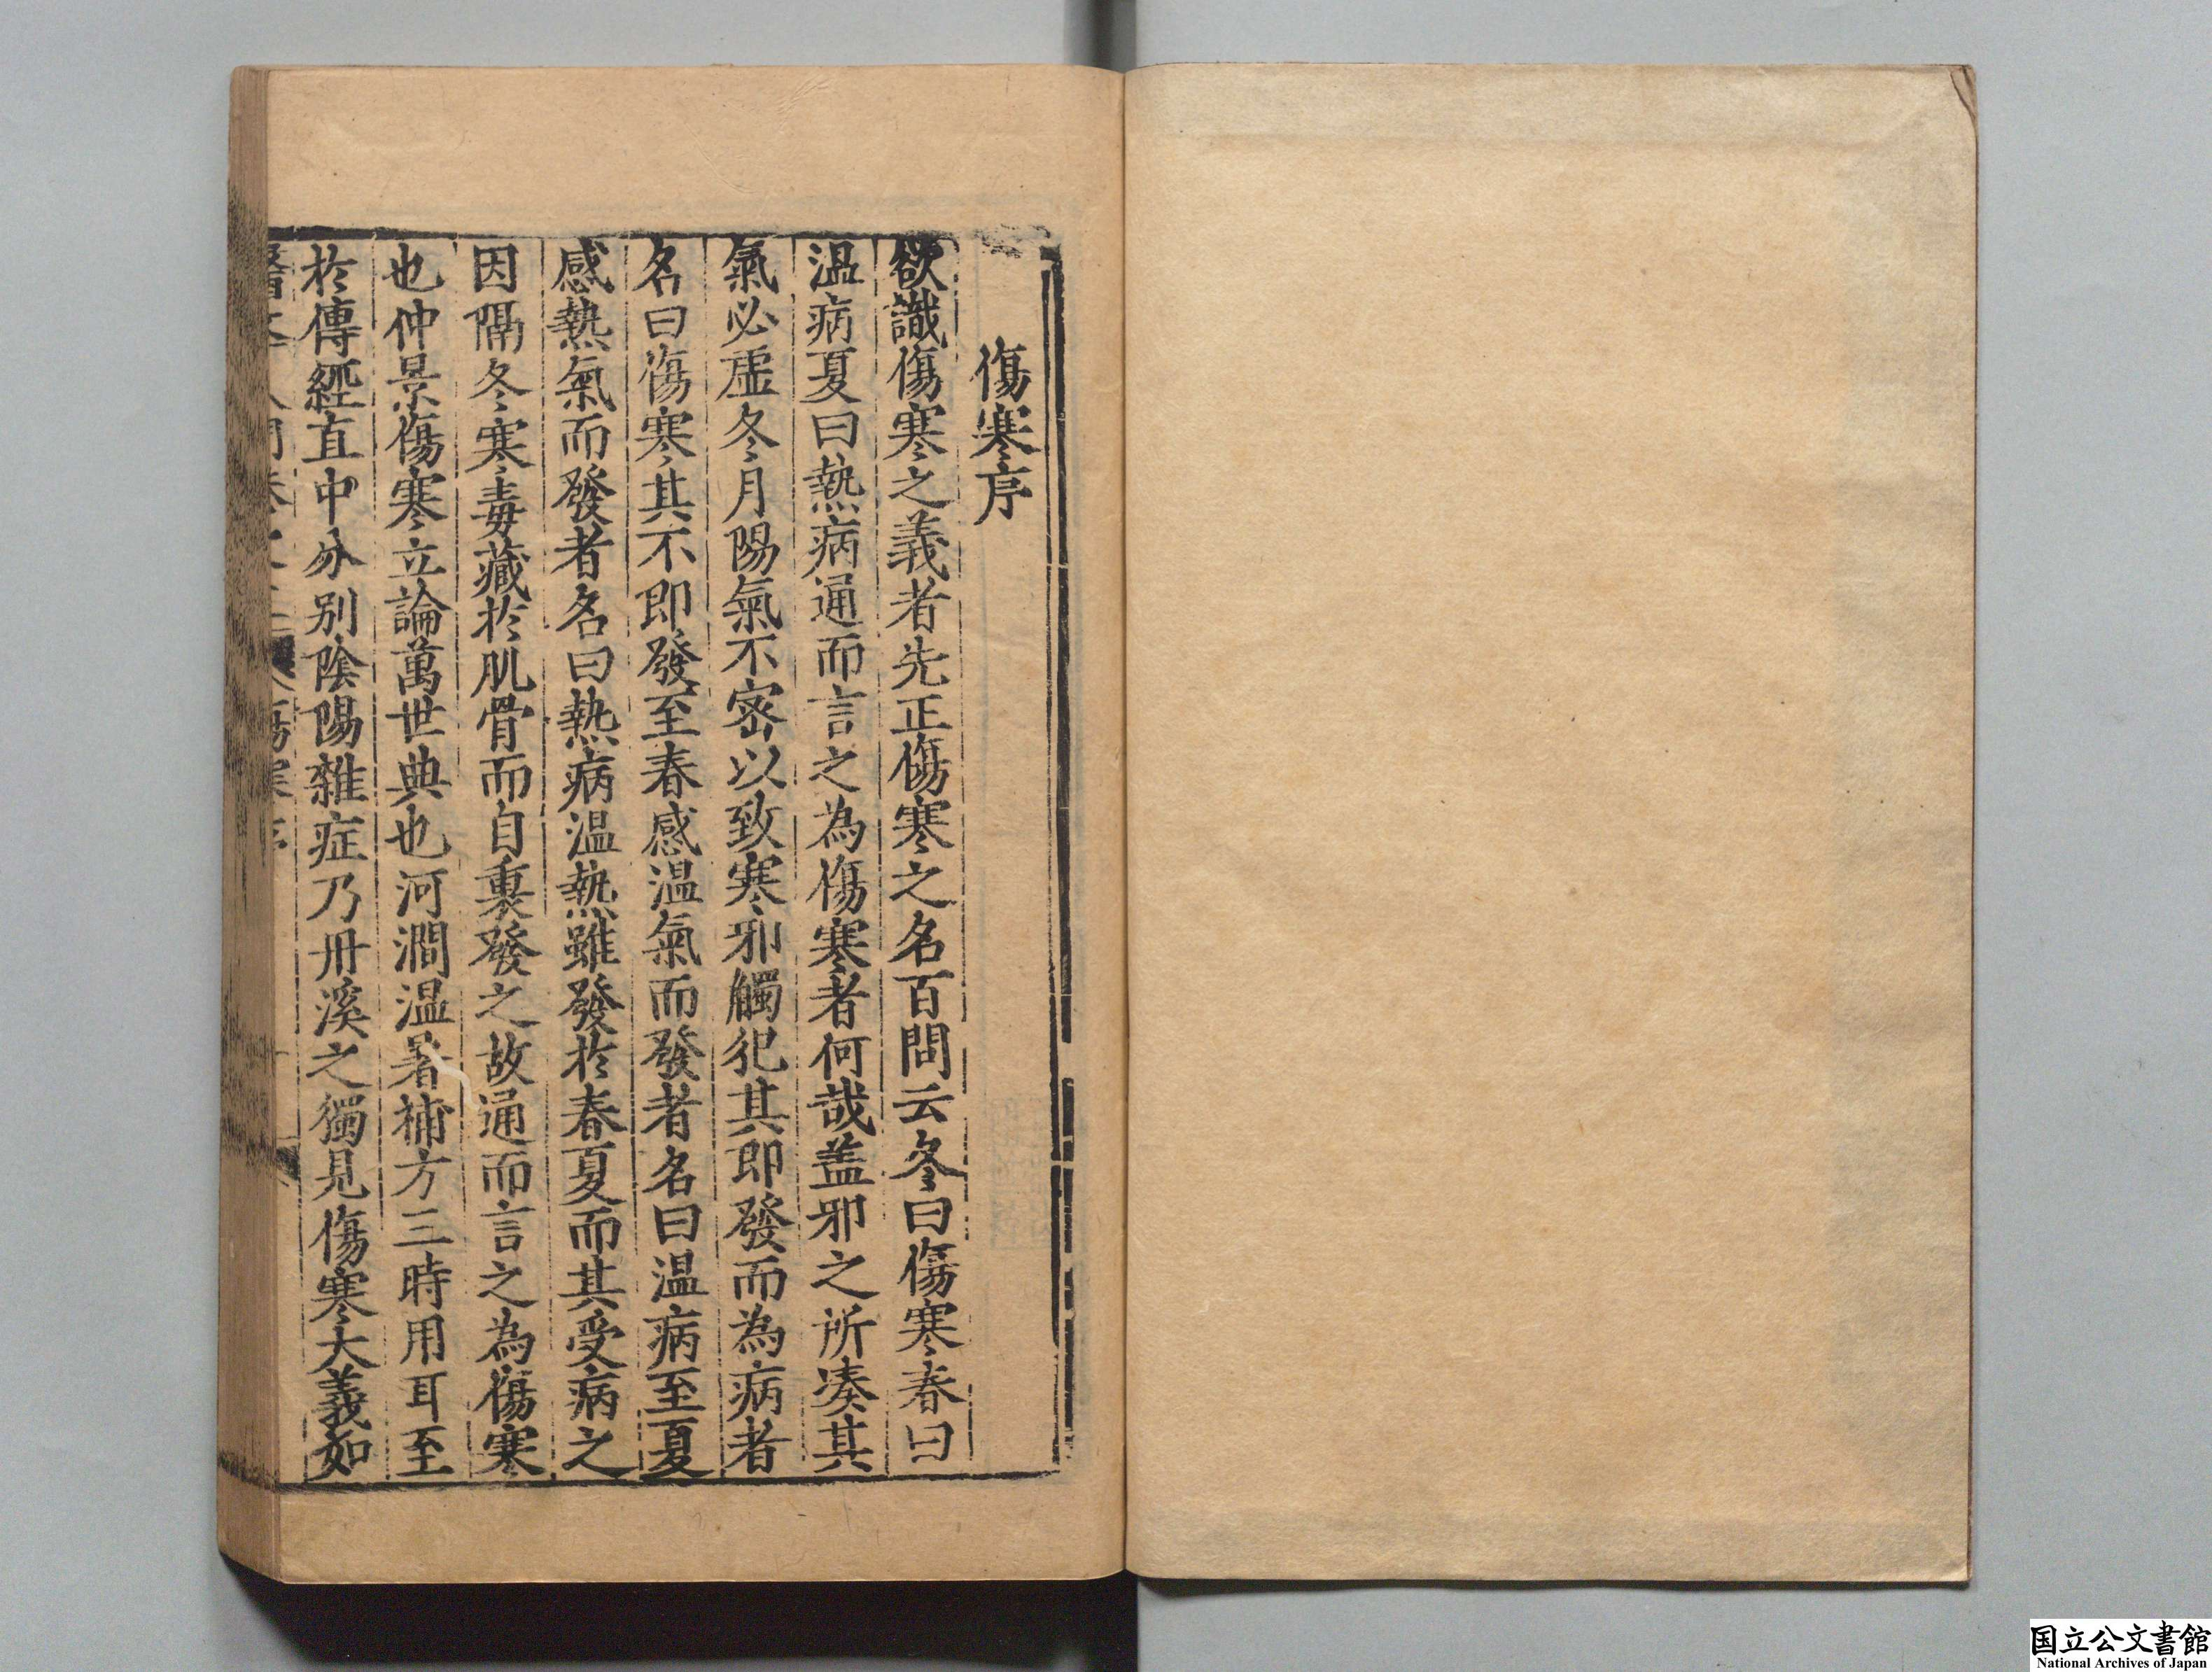 傷寒序
欲識傷寒之義者先正傷寒之名百問云冬曰傷寒春曰
温病夏曰熱病通而言之為傷寒者何哉盖邪之所凑其
氣必虚冬月陽氣不宻以致寒邪觸犯其即發而為病者
名曰傷寒其不即發至春感温氣而發者名曰温病至夏
感熱氣而發者名曰熱病温熱雖發於春夏而其受病之
因隔冬寒毒藏於肌骨而自裏發之故通而言之為傷寒
也仲景傷寒立論萬世典也河澗温暑補方三時用耳至
於傳經直中分别陰陽雜症乃丹溪之獨見傷寒大義如
国立公文書館
National Archives of Japan